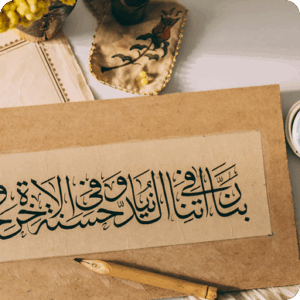 ربنا آتنا في الدنيا حسنة وفي الآخرة حسنة و